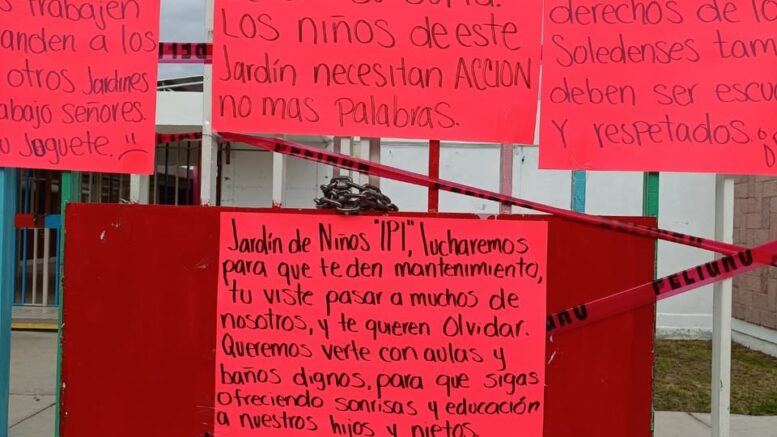 trabajen
anden a los
otros Jardines
abajo señores.
u Joguete.
Los niños de este
Jardín necesitan ACCION
no mas Palabras.
derechos de lo
Soledenses tam
deben ser escu
Y respetados.
PELIGRO
Jardín de Niños "IPI", lucharemos
para que te den mantenimiento,
tu viste pasar a muchos de
nosotros, y te quieren Olvidar.
Queremos verte con aulas y
baños dignos, para que sigas
ofreciendo sonrisas y educación
a nuestros hijos y nietos.